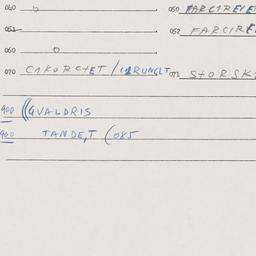 040
050 FARCIREE
051
052 FARCIRE
060
070 CIKORCTET / CIRUNGLT 071 STORSK
400 ((GVALDRIS
400 TANDE,T (085